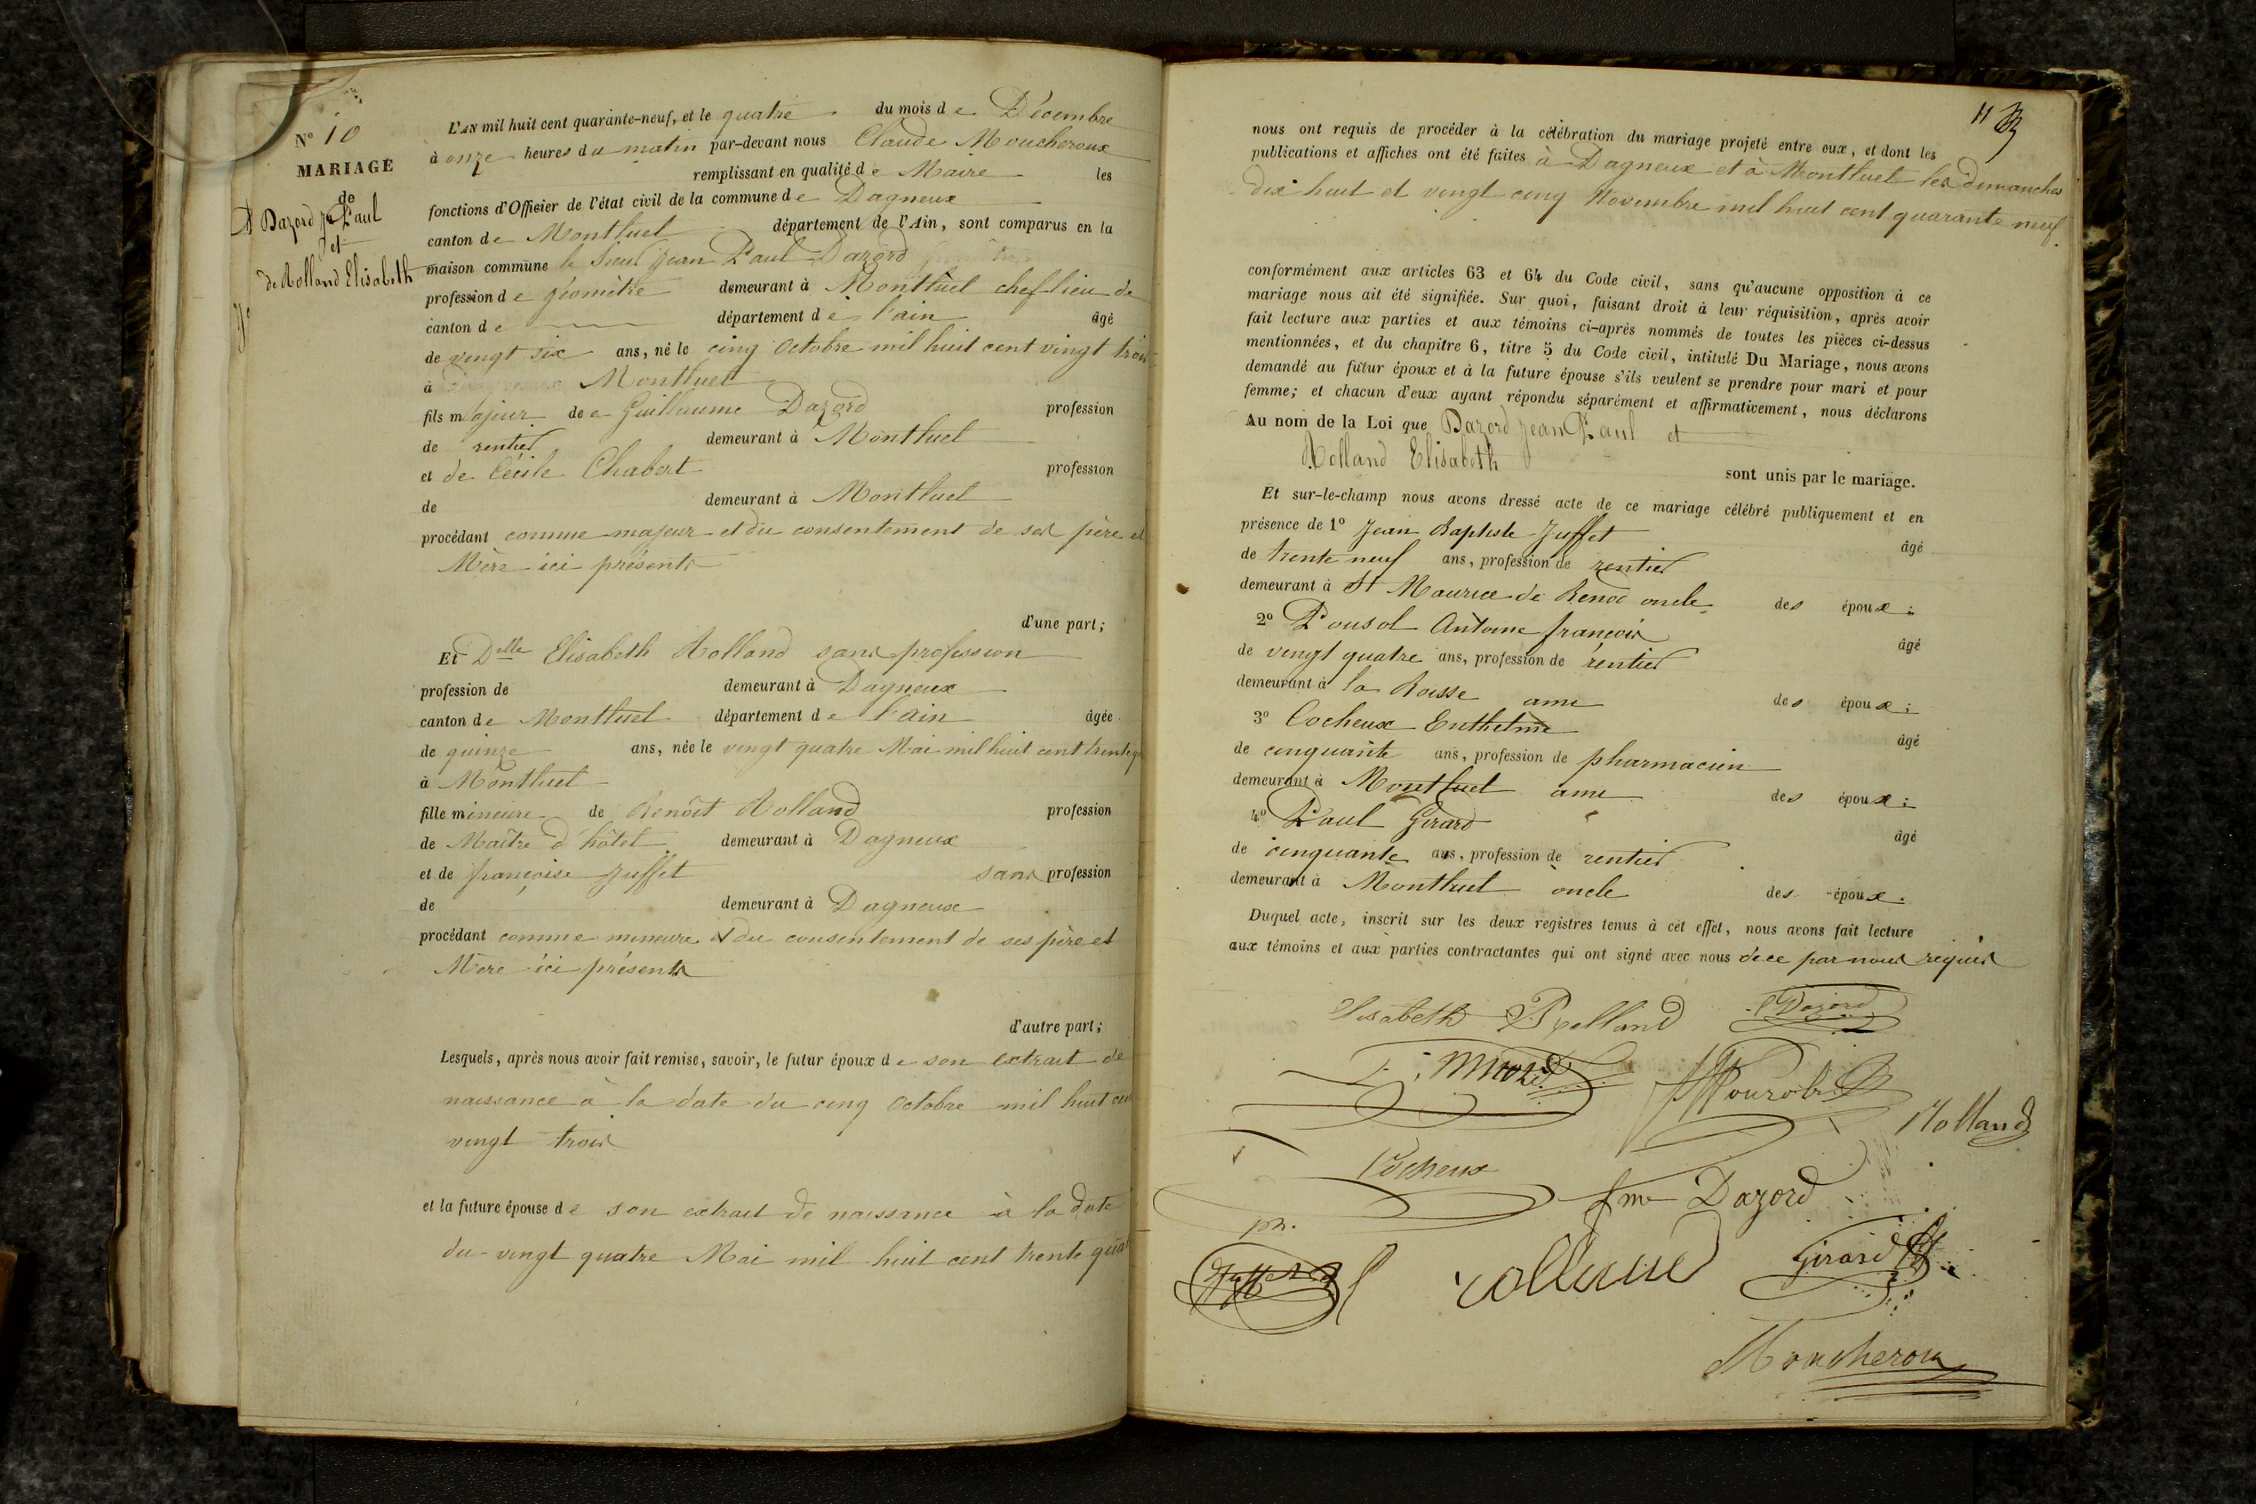 N° 10
MARIAGE
de
Dazord Jn Paul
et
de Rolland Elisabeth
L'AN mil huit cent quarante-neuf, et le quatre du mois de Décembre
à onze heures du matin par-devant nous Claude Moucheroux
remplissant en qualité de Maire les
fonctions d'Officier de l'état civil de la commune de Dagneux
canton de Montluel département de l'Ain, sont comparus en la
maison commune le Sieur Jean Paul Dazord
profession de géomètre demeurant à Montluel chef lieu de
canton de département de l'ain âgé
de vingt six ans, né le cinq Octobre mil huit cent vingt trois
à Montluel
fils majeur de Guillaume Dazord profession
de rentier demeurant à Montluel
et de Cécile Chabert profession
de demeurant à Montluel
procédant comme majeur et du consentement de ses père et
Mère ici présents
d'une part;
Et Delle Elisabeth Rolland sans profession
profession de demeurant à Dagneux
canton de Montluel département de l'ain âgée
de quinze ans, née le vingt quatre Mai mil huit cent trente
à Montluel
fille mineure de Benoît Rolland profession
de Maître d'hôtel demeurant à Dagneux
et de françoise Juffet sans profession
de demeurant à Dagneux
procédant comme mineure et du consentement de ses père et
Mère ici présents
d'autre part;
Lesquels, après nous avoir fait remise, savoir, le futur époux de son extrait de
naissance à la date du cinq Octobre mil huit cent
vingt trois
et la future épouse de son extrait de naissance à la date
du vingt quatre Mai mil huit cent trente quat
11
nous ont requis de procéder à la célébration du mariage projeté entre eux, et dont les
publications et affiches ont été faites à Dagneux et à Montluel les dimanches
dix huit et vingt cinq Novembre mil huit cent quarante neuf.
conformément aux articles 63 et 64 du Code civil, sans qu'aucune opposition à ce
mariage nous ait été signifiée. Sur quoi, faisant droit à leur réquisition, après avoir
fait lecture aux parties et aux témoins ci-après nommés de toutes les pièces ci-dessus
mentionnées, et du chapitre 6, titre 5 du Code civil, intitulé Du Mariage, nous avons
demandé au futur époux et à la future épouse s'ils veulent se prendre pour mari et pour
femme; et chacun d'eux ayant répondu séparément et affirmativement, nous déclarons
Au nom de la Loi que Dazord Jean Paul et
Rolland Elisabeth
sont unis par le mariage.
Et sur-le-champ nous avons dressé acte de ce mariage célébré publiquement et en
présence de 1° Jean Baptiste Juffet âgé
de trente neuf ans, profession de rentier
demeurant à St Maurice de oncle des époux;
2° Antoine françois âgé
de vingt quatre ans, profession de rentier
demeurant à la Boisse ami des époux;
3° Cocheux Enthelme âgé
de cinquante ans, profession de pharmacien
demeurant à Montluel ami des époux;
4° Paul Girard âgé
de cinquante ans, profession de rentier
demeurant à Montluel oncle des époux.
Duquel acte, inscrit sur les deux registres tenus à cet effet, nous avons fait lecture
aux témoins et aux parties contractantes qui ont signé avec nous de ce par nous requis
Elisabeth Rolland
Dazord
Rolland
Cocheux
ph.
fme Dazord
Juffet
Girard
Moucheroux